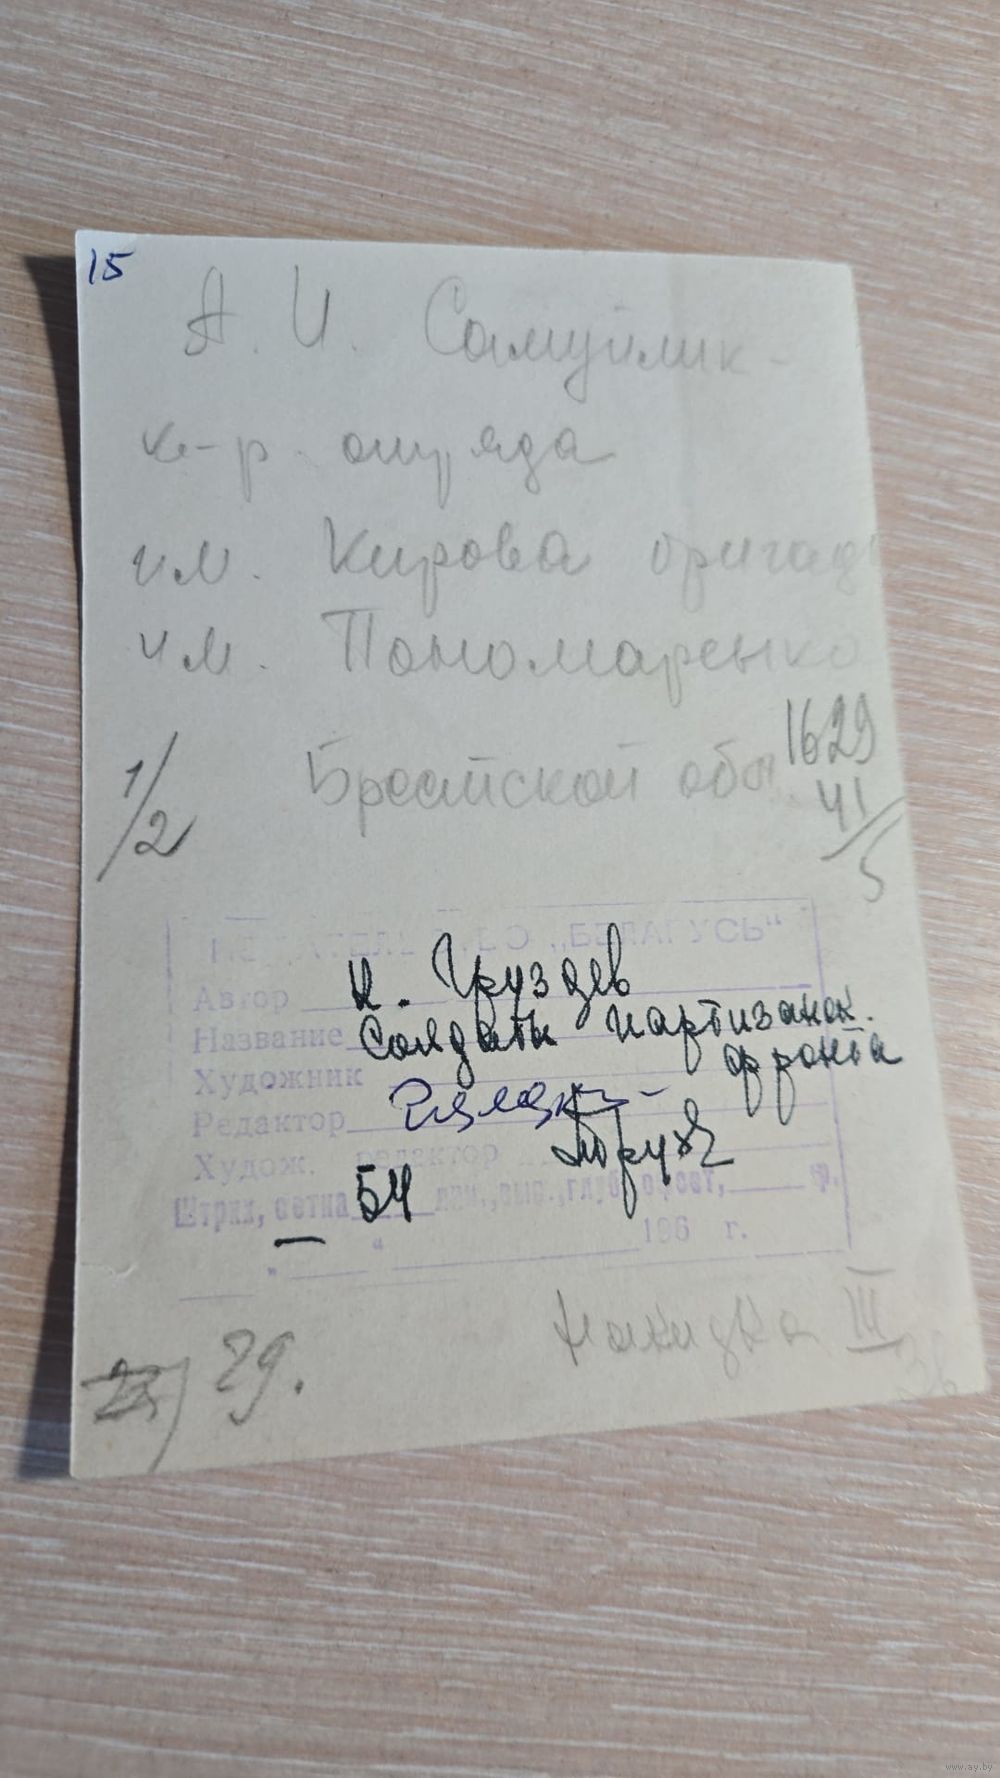 15
А. И. Самуйлик -
к-р. отряда
им. Кирова бригад
им. Пономаренко
1629
Брестской обл.
41/5
1/2
ИЗДАТЕЛЬСТВО „БЕЛАРУСЬ“
Автор К. Груздев
Название Солдаты партизанск. фронта
Художник
Редактор
Худож. редактор
Штрих, сетка 54 лин., выс., глуб. офсет, ф.
" " 196 г.
29.
Накидка III
www.ay.by